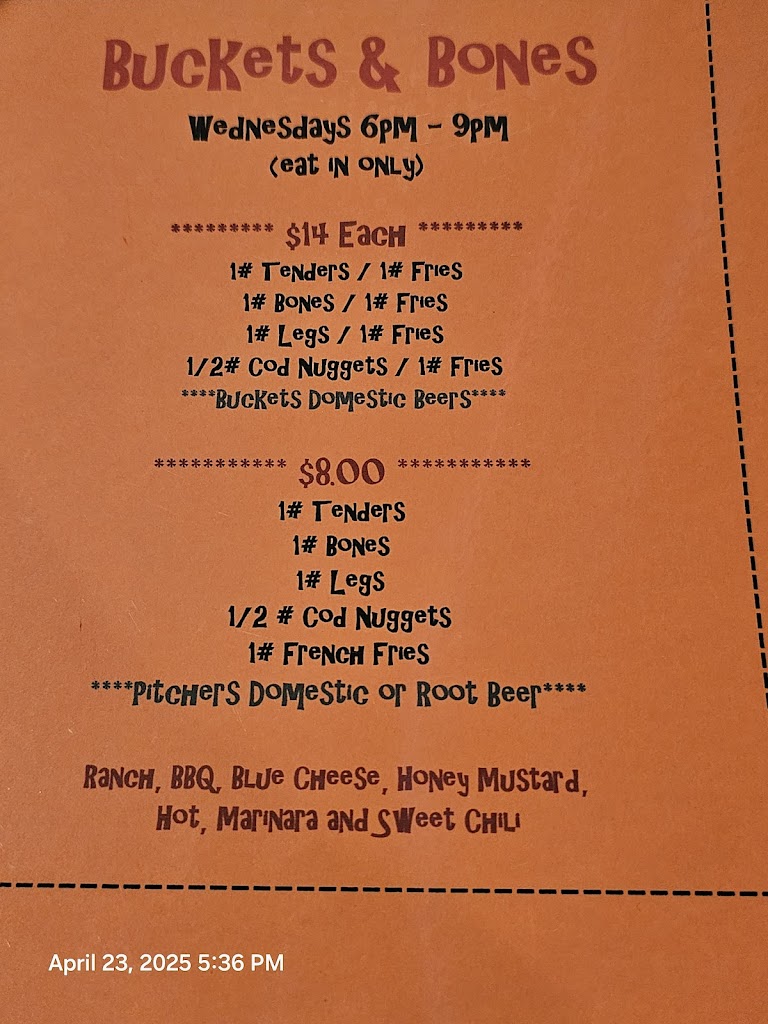 Buckets & Bones
Wednesdays 6pm - 9pm
(eat in only)
********* $14 Each *********
1# Tenders / 1# Fries
1# Bones / 1# Fries
1# Legs / 1# Fries
1/2# Cod Nuggets / 1# Fries
****Buckets Domestic Beers****
*********** $8.00 ***********
1# Tenders
1# Bones
1# Legs
1/2 # Cod Nuggets
1# French Fries
****Pitchers Domestic or Root Beer****
Ranch, BBQ, Blue Cheese, Honey Mustard,
Hot, Marinara and Sweet Chili
April 23, 2025 5:36 PM